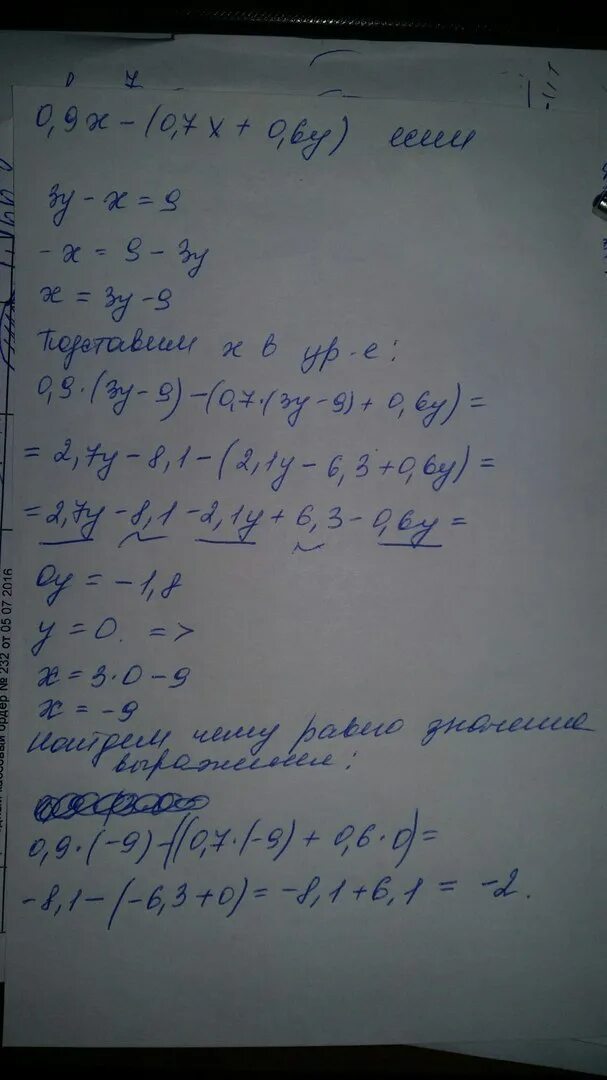 7
0,9х - (0,7х + 0,6у) если
3у - х = 9
-х = 9 - 3у
х = 3у - 9
Подставим х в ур-е:
0,9·(3у - 9) - (0,7·(3у - 9) + 0,6у) =
= 2,7у - 8,1 - (2,1у - 6,3 + 0,6у) =
= 2,7у - 8,1 - 2,1у + 6,3 - 0,6у =
0у = -1,8
у = 0. =>
х = 3·0 - 9
х = -9
Найдем чему равно значение
выражения:
0,9·(-9) - ((0,7·(-9) + 0,6·0) =
-8,1 - (-6,3 + 0) = -8,1 + 6,1 = -2.
ордер № 232 от 05 07 2016